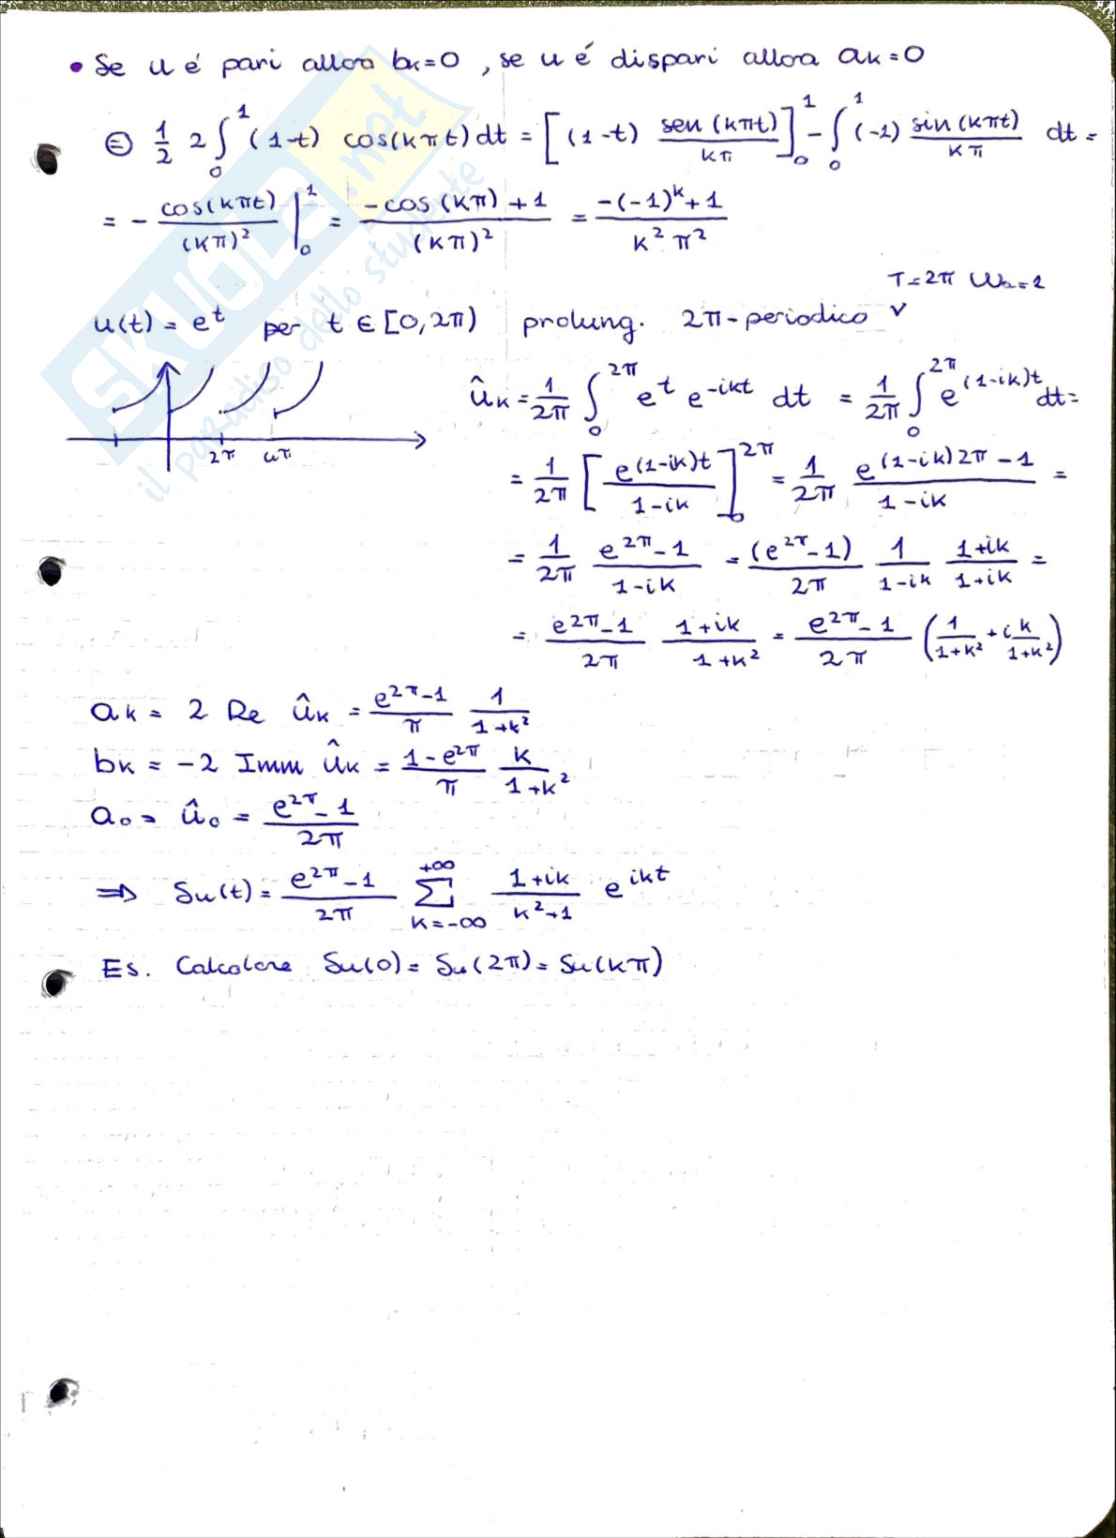 • Se u é pari allora bₖ=0 , se u é dispari allora aₖ=0
⊜ 1/2 2 ∫₀¹ (1-t) cos(kπt)dt = [(1-t) sen(kπt)/kπ]₀¹ - ∫₀¹ (-1) sin(kπt)/kπ dt =
= - cos(kπt)/(kπ)² |₀¹ = -cos(kπ)+1/(kπ)² = -(-1)ᵏ+1/k²π²
T=2π
u(t) = eᵗ per t ∈ [0,2π) prolung. 2π-periodico
ûₖ = 1/2π ∫₀^2π eᵗ e^-ikt dt = 1/2π ∫₀^2π e^(1-ik)t dt =
2π 4π
= 1/2π [e^(1-ik)t/1-ik]₀^2π = 1/2π e^(1-ik)2π -1/1-ik =
= 1/2π e^2π-1/1-ik = (e^2π-1)/2π 1/1-ik 1+ik/1+ik =
= e^2π-1/2π 1+ik/1+k² = e^2π-1/2π (1/1+k² + i k/1+k²)
aₖ = 2 Re ûₖ = e^2π-1/π 1/1+k²
bₖ = -2 Imm ûₖ = 1-e^2π/π k/1+k²
a₀ = û₀ = e^2π-1/2π
⇒ Su(t) = e^2π-1/2π ∑_{k=-∞}^{+∞} 1+ik/k²+1 e^ikt
Es. Calcolare Su(0) = Su(2π) = Su(kπ)
SKUOLA.net
il paradiso dello studente